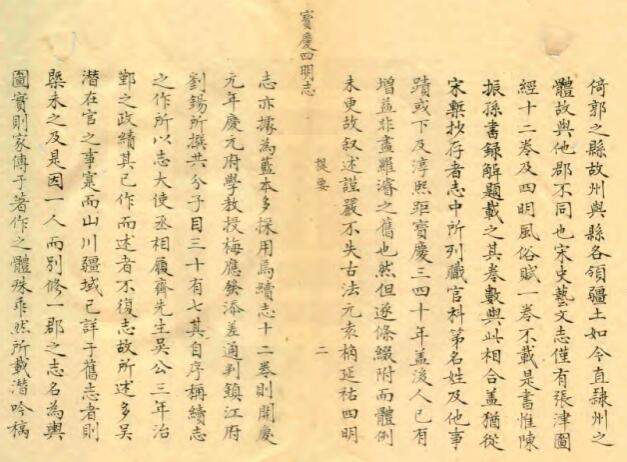 倚郭之縣故州與縣各領疆土如今直隸州之
體故與他郡不同也宋史藝文志僅有張津圖
經十二卷及四明風俗賦一卷不載是書惟陳
振孫書録解題載之其卷數與此相合盖猶從
宋槧抄存者志中所列職官科第名姓及他事
蹟或下及淳熙距寶慶三四十年盖後人已有
增益非盡羅濬之舊也然但逐條綴附而體例
未更故叙述謹嚴不失古法元袁桷延祐四明
寶慶四明志
提要
二
志亦據為藍本多採用焉續志十二卷則開慶
元年慶元府學教授梅應發添差通判鎮江府
劉錫所撰共分子目三十有七其自序稱續志
之作所以志大使丞相履齋先生吳公三年治
鄞之政績其已作而述者不復志故所述多吳
潛在官之事寔而山川疆域已詳于舊志者則
槩未之及是因一人而別修一郡之志名為輿
圖實則家傳于著作之體殊乖然所載潛吟稿